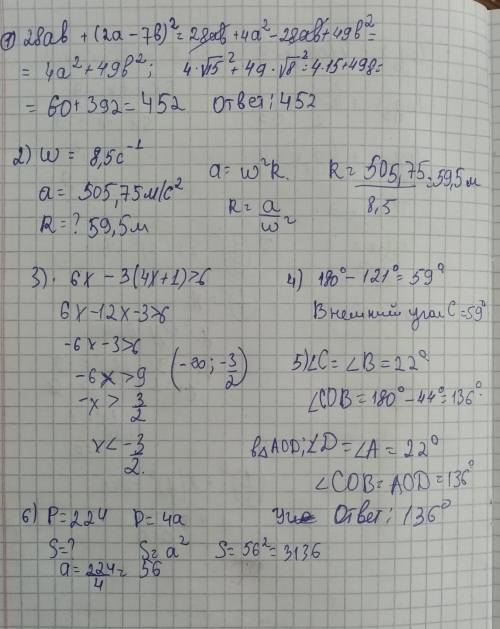 1) 28ab + (2a - 7b)² = 28ab + 4a² - 28ab + 49b² =
= 4a² + 49b²; 4·√15² + 49·√8² = 4·15 + 49·8 =
= 60 + 392 = 452 Ответ: 452
2) W = 8,5c⁻¹
a = 505,75 м/с²
R = ? 59,5м
a = ω²R.
R = a/ω²
R = 505,75/8,5 = 59,5 м
3). 6x - 3(4x+1)>6
6x - 12x - 3>6
-6x - 3>6
-6x > 9
-x > 3/2
x < -3/2.
(-∞; -3/2)
4) 180° - 121° = 59°
Внешний угол C = 59°
5) ∠C = ∠B = 22°
∠COB = 180° - 44° = 136°
в△AOD; ∠D = ∠A = 22°
∠COB = AOD = 136°
Ответ: 136°
6) P = 224 P = 4a
S = ? S = a² S = 56² = 3136
a = 224/4 = 56